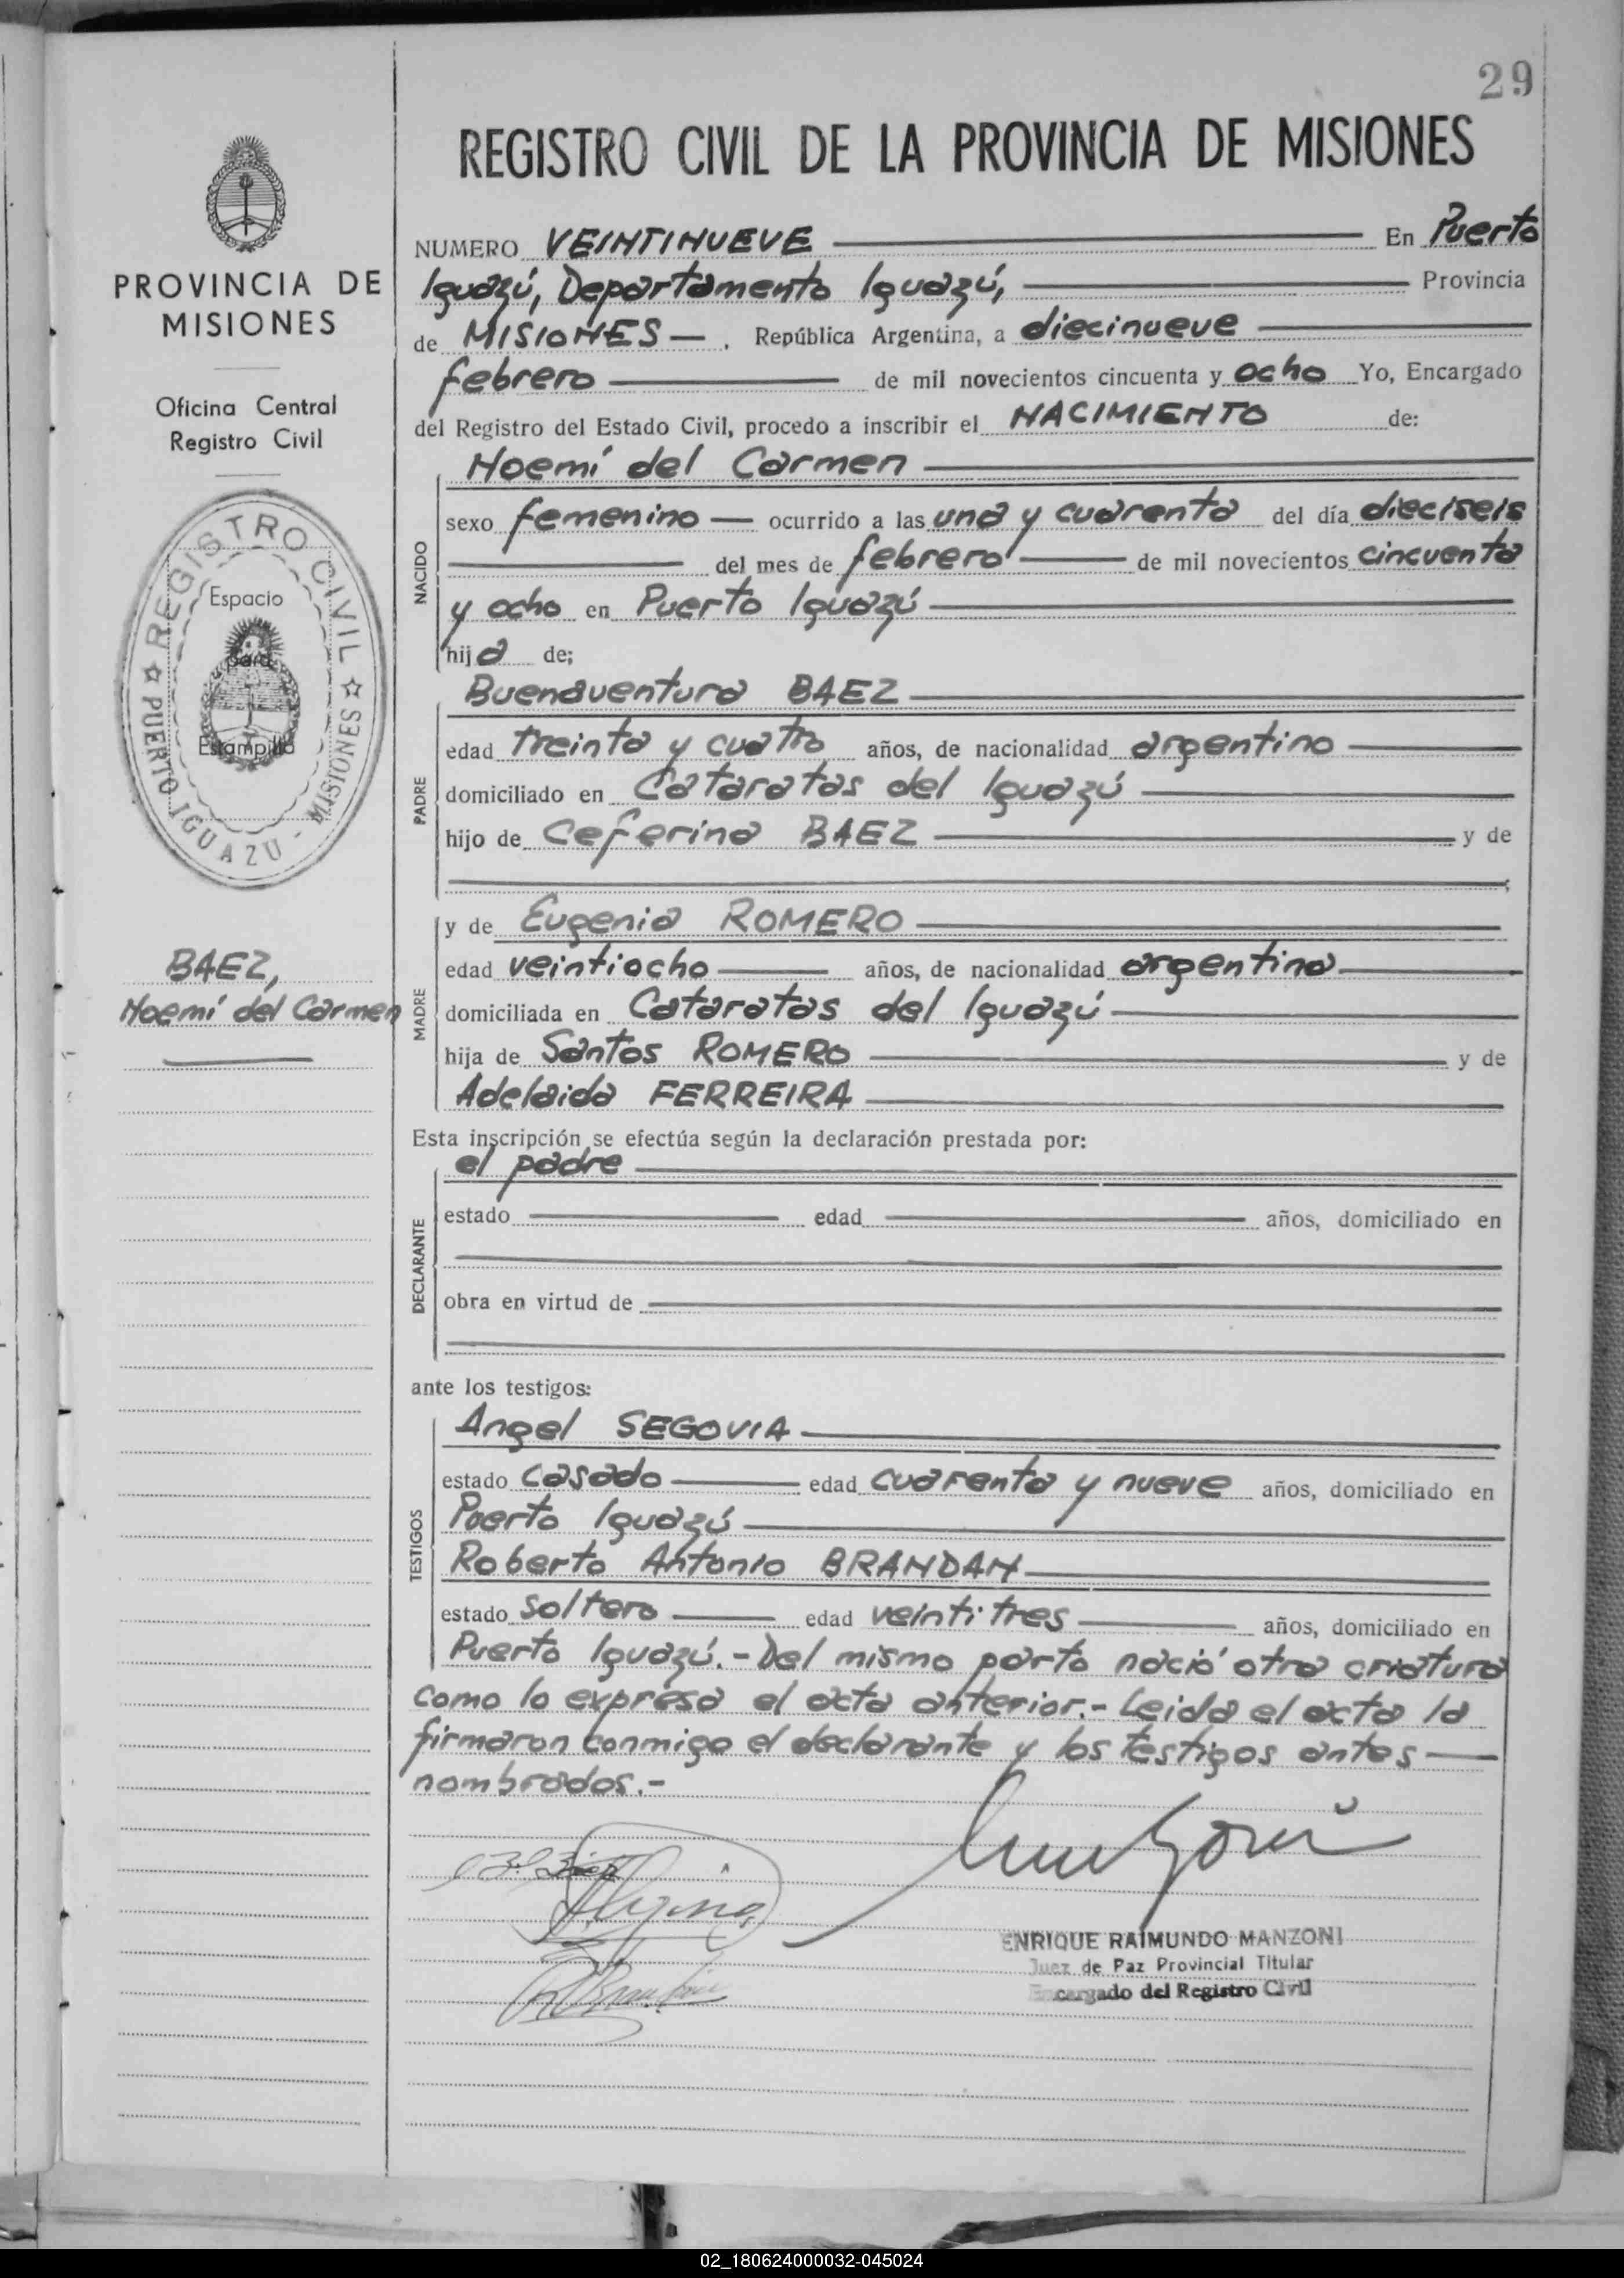 29
REGISTRO CIVIL DE LA PROVINCIA DE MISIONES
NUMERO VEINTINUEVE En Puerto
Iguazú, Departamento Iguazú, Provincia
de MISIONES —. República Argentina, a diecinueve
febrero de mil novecientos cincuenta y ocho Yo, Encargado
del Registro del Estado Civil, procedo a inscribir el NACIMIENTO de:
Noemí del Carmen
NACIDO
sexo femenino — ocurrido a las una y cuarenta del día dieciseis
del mes de febrero de mil novecientos cincuenta
y ocho en Puerto Iguazú
hija de;
PADRE
Buenaventura BAEZ
edad treinta y cuatro años, de nacionalidad argentino
domiciliado en Cataratas del Iguazú
hijo de Ceferina BAEZ y de
;
MADRE
y de Eugenia ROMERO
edad veintiocho años, de nacionalidad argentina
domiciliada en Cataratas del Iguazú
hija de Santos ROMERO y de
Adelaida FERREIRA
Esta inscripción se efectúa según la declaración prestada por:
DECLARANTE
el padre
estado edad años, domiciliado en
obra en virtud de
ante los testigos:
TESTIGOS
Angel SEGOVIA
estado casado edad cuarenta y nueve años, domiciliado en
Puerto Iguazú
Roberto Antonio BRANDAN
estado soltero edad veintitres años, domiciliado en
Puerto Iguazú.- Del mismo parto nació otra criatura
como lo expresa el acta anterior.- Leida el acta la
firmaron conmigo el declarante y los testigos antes
nombrados.-
ENRIQUE RAIMUNDO MANZONI
Juez de Paz Provincial Titular
Encargado del Registro Civil
PROVINCIA DE
MISIONES
Oficina Central
Registro Civil
REGISTRO CIVIL
PUERTO IGUAZU - MISIONES
Espacio
para
Estampilla
BAEZ,
Noemí del Carmen
02_180624000032-045024